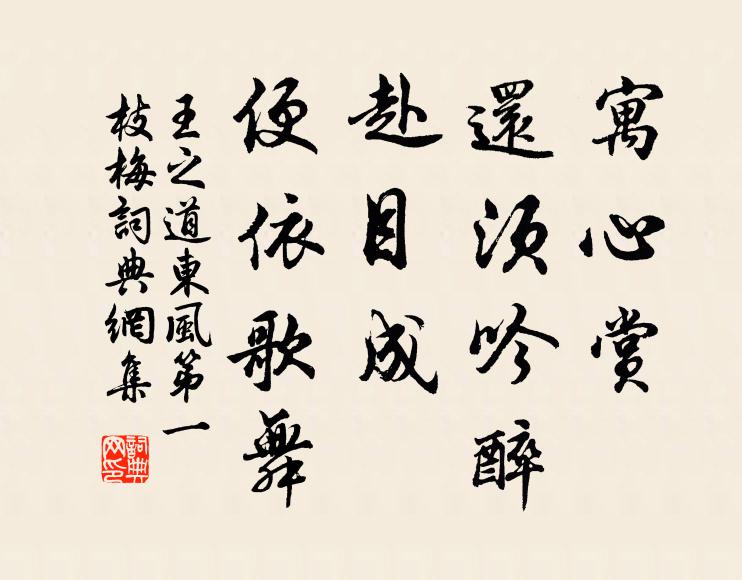 寓心赏
還須吟醉
赴目成
便依歌舞
王之道東風第一
枝梅詞典網集
詞典網印